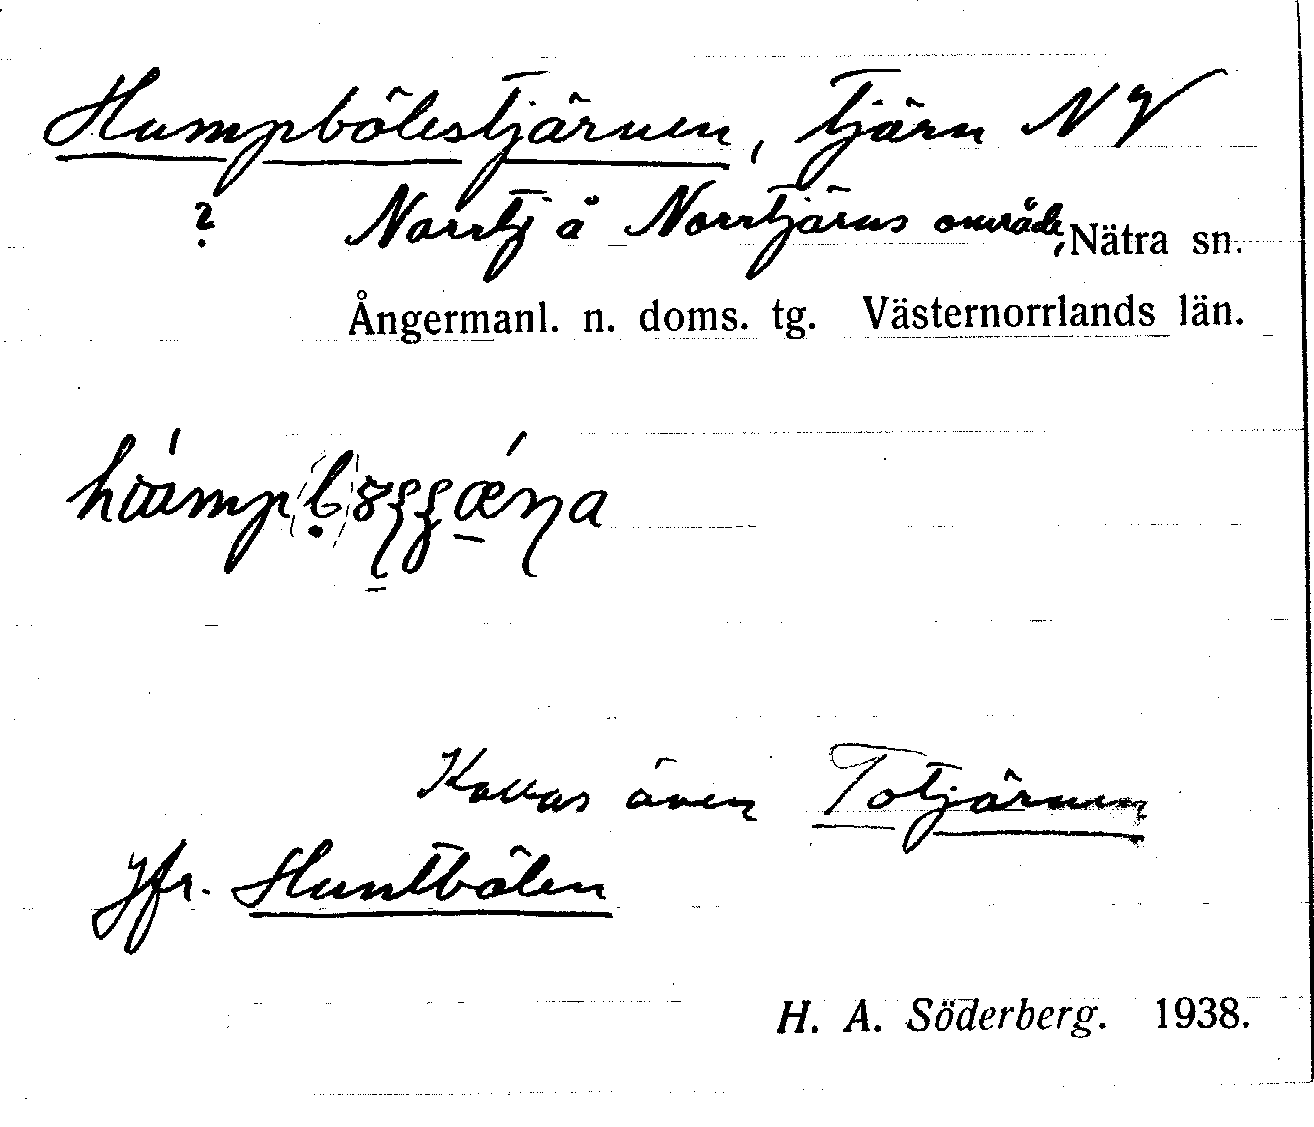 Humpbölestjärnen, tjärn NV
? Norrtj å Norrtjärns område, Nätra sn.
Ångermanl. n. doms. tg. Västernorrlands län.
Kallas även Totjärnen
Jfr. Huntbölen
H. A. Söderberg. 1938.